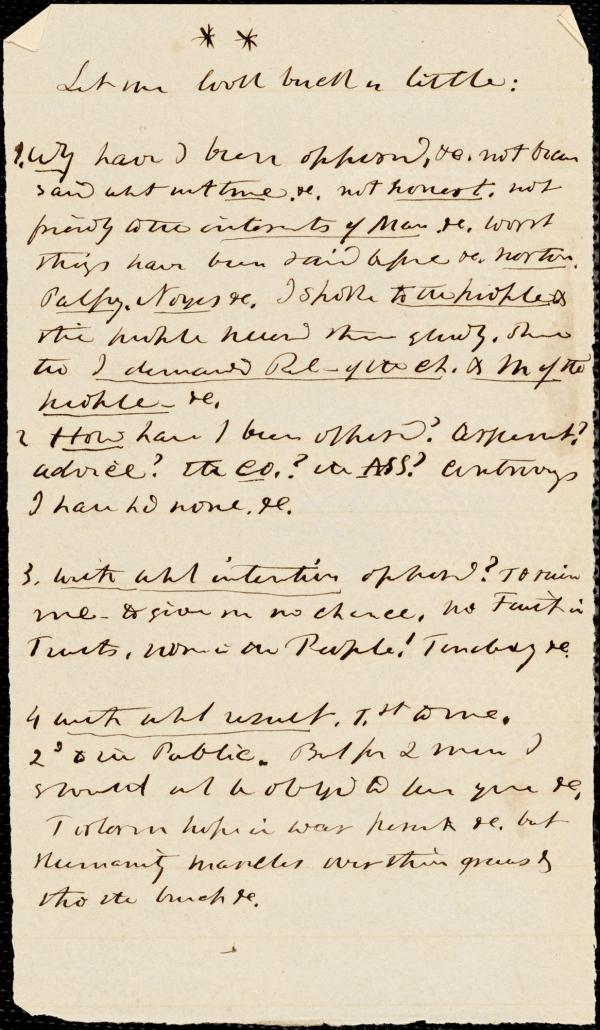 * *
Let me look back a little:
1. Why have I been opposed, &c. not been
said wht not true, &c. not honest. not
friendly to the interests of Man &c. worst
things have been said before &c. Norton,
Palfry, Noyes &c. I spoke to the people &
the people heard them gladly.
too I demanded Rel- of the Ch. & M of the
people - &c.
2 How have I been opposed? Argument?
advice? the CO.? the ASS? Controversy
I have hd none. &c.
3. with wht intention opposed? To ruin
me - to give me no chance. No Faith in
Truth, none in the People!
4 with wht result. 1. st to me.
2 d to the Public. But for 2 men I
should not be obliged to leave you &c.
hope in war &c. but
Humanity marches over their graves by
the &c.